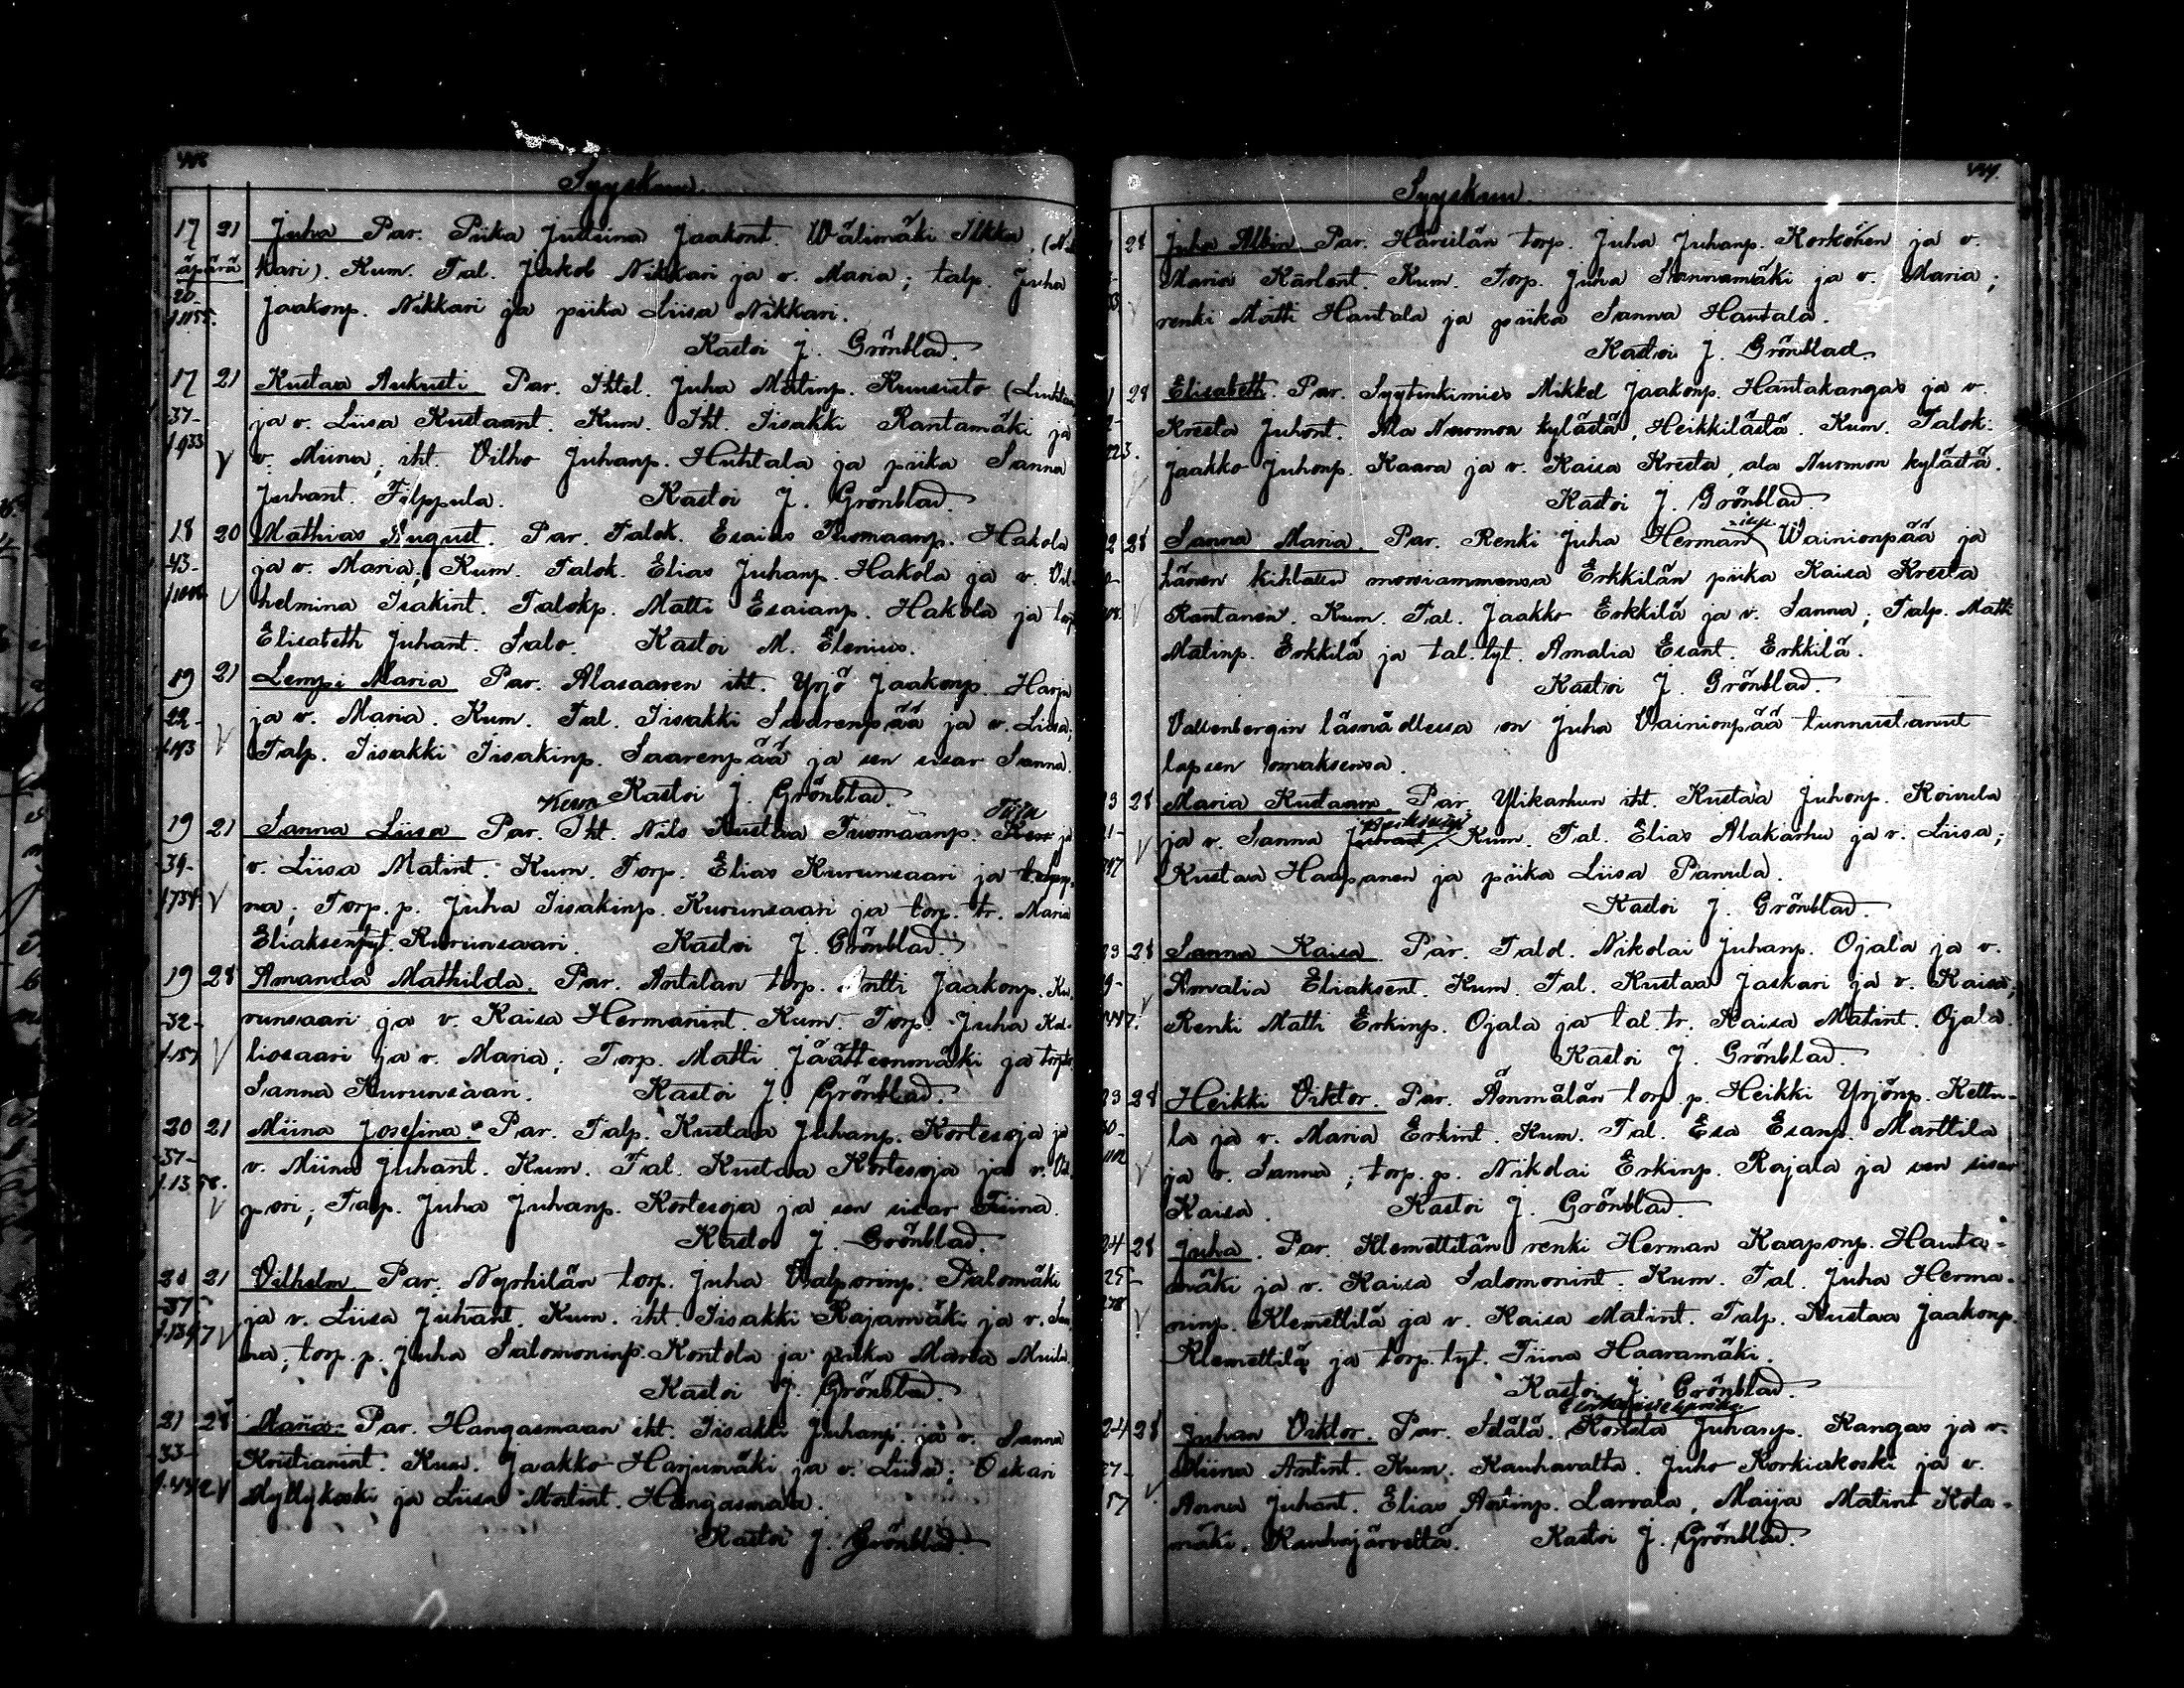 Syyskuu.
17 21 Juha Par. Piika Justiina Jaakont. Wälimäki Ilkka
äpärä kari). Kum. Tal. Jakob Nikkari ja v. Maria; talp. Juha
Jaakonp. Nikkari ja piika Liisa Nikkari.
Kastoi J. Grönblad.
17 21 Kustaa Aukusti Par. Ittel. Juha Matinp. Kuusisto
37- ja v. Liisa Kustaant. Kum. Itt. Iisakki Rantamäki ja
v. Miina; itt. Vilho Juhanp. Huhtala ja piika Sanna
Juhant. Filppula. Kastoi J. Grönblad.
18 20 Mathias August. Par. Talok. Esaias Tuomaanp. Hakola
43- ja v. Maria. Kum. Talok. Elias Juhanp. Hakola ja v. Vil-
helmina Isakint. Talokp. Matti Esaianp. Hakola ja
Elisabeth Juhant. Salo. Kastoi M. Elenius.
19 21 Lempi Maria Par. Alasaaren itt. Yrjö Jaakonp. Harju
22- ja v. Maria. Kum. Tal. Iisakki Saarenpää ja v. Liisa;
Talp. Iisakki Iisakinp. Saarenpää ja sen sisar Sanna.
Kastoi J. Grönblad.
19 21 Sanna Liisa Par. Itt. Nils Kustaa Tuomaanp. ja
39- v. Liisa Matint. Kum. Torp. Elias Kurunsaari ja
na; Torp. p. Juha Iisakinp. Kurunsaari ja torp. tr. Maria
Eliaksent. Kurunsaari. Kastoi J. Grönblad.
19 28 Amanda Mathilda. Par. Antilan torp. Antti Jaakonp. Ku-
32- runsaari ja v. Kaisa Hermanint. Kum. Torp. Juha Kal-
liosaari ja v. Maria; Torp. Matti Jäätteenmäki ja
Sanna Kurunsaari. Kastoi J. Grönblad.
20 21 Miina Josefina. Par. Talp. Kustaa Juhanp. Kortesoja ja
37- v. Miina Juhant. Kum. Tal. Kustaa Kortesoja ja v. Val-
pori; Talp. Juha Juhanp. Kortesoja ja sen sisar Tiina.
Kastoi J. Grönblad.
21 Vilhelm Par. Nyrhilän torp. Juha Valporinp. Palomäki
37- ja v. Liisa Juhant. Kum. itt. Iisakki Rajamäki ja v. San-
na; torp. p. Juha Salomoninp. Kontola ja piika Maria
Kastoi J. Grönblad.
21 28 Maria. Par. Hangasmaan itt. Iisakki Juhanp. ja v. Sanna
33- Kristianint. Kum. Jaakko Harjumäki ja v. Liisa; Oskari
Myllykoski ja Liisa Matint. Hangasmaa.
Kastoi J. Grönblad.
Syyskuu.
28 Juha Albin Par. Harsilän torp. Juha Juhanp. Korkonen ja v.
Maria Karlent. Kum. Torp. Juha Sannamäki ja v. Maria;
renki Matti Hautala ja piika Sanna Hautala.
Kastoi J. Grönblad.
28 Elisabeth. Par. Syytinkimies Mikkel Jaakonp. Hautakangas ja v.
Kresta Juhont. Ala Nurmon kylästä, Heikkilästä. Kum. Talok.
Jaakko Juhonp. Kaara ja v. Kaisa Kresta, ala Nurmon kylästä.
Kastoi J. Grönblad.
28 Sanna Maria. Par. Renki Juha Herman Wainionpää ja
hänen kihlattu morsiammensa Erkkilän piika Kaisa Kresta
Rantanen. Kum. Tal. Jaakko Erkkilä ja v. Sanna; Talp. Matti
Matinp. Erkkilä ja tal. tyt. Amalia Esant. Erkkilä.
Kastoi J. Grönblad.
Vallenbergin läsnäollessa on Juha Wainionpää tunnustanut
lapsen omaksensa.
28 Maria Kustaava. Par. Ylikarhun itt. Kustaa Juhonp. Koivula
ja v. Sanna Juhant. Kum. Tal. Elias Alakarhu ja v. Liisa;
Kustaa Haapanen ja piika Liisa Panula.
Kastoi J. Grönblad.
28 Sanna Kaisa Par. Talol. Nikolai Juhanp. Ojala ja v.
Amalia Eliaksent. Kum. Tal. Kustaa Jaskari ja v. Kaisa;
Renki Matti Erkinp. Ojala ja tal. tr. Kaisa Matint. Ojala.
Kastoi J. Grönblad.
28 Heikki Viktor. Par. Ämmälän torp. p. Heikki Yrjönp. Kettu-
la ja v. Maria Erkint. Kum. Tal. Esa Esanp. Marttila
ja v. Sanna; torp. p. Nikolai Erkinp. Rajala ja sen sisar
Kaisa. Kastoi J. Grönblad.
24 28 Juha. Par. Klemettilän renki Herman Kaaponp. Hauta-
25- mäki ja v. Kaisa Salomonint. Kum. Tal. Juha Herma-
ninp. Klemettilä ja v. Kaisa Matint. Talp. Kustaa Jaakonp.
Klemettilä ja torp. tyt. Tiina Haaramäki.
Kastoi J. Grönblad.
24 28 Juhan Viktor. Par. Itälä. Juhanp. Kangas ja v.
27- Miina Antint. Kum. Kauhavalta. Juho Korkiakoski ja v.
Anna Juhant. Elias Antinp. Larvala, Maija Matint Kota-
mäki. Kauhajärveltä. Kastoi J. Grönblad.